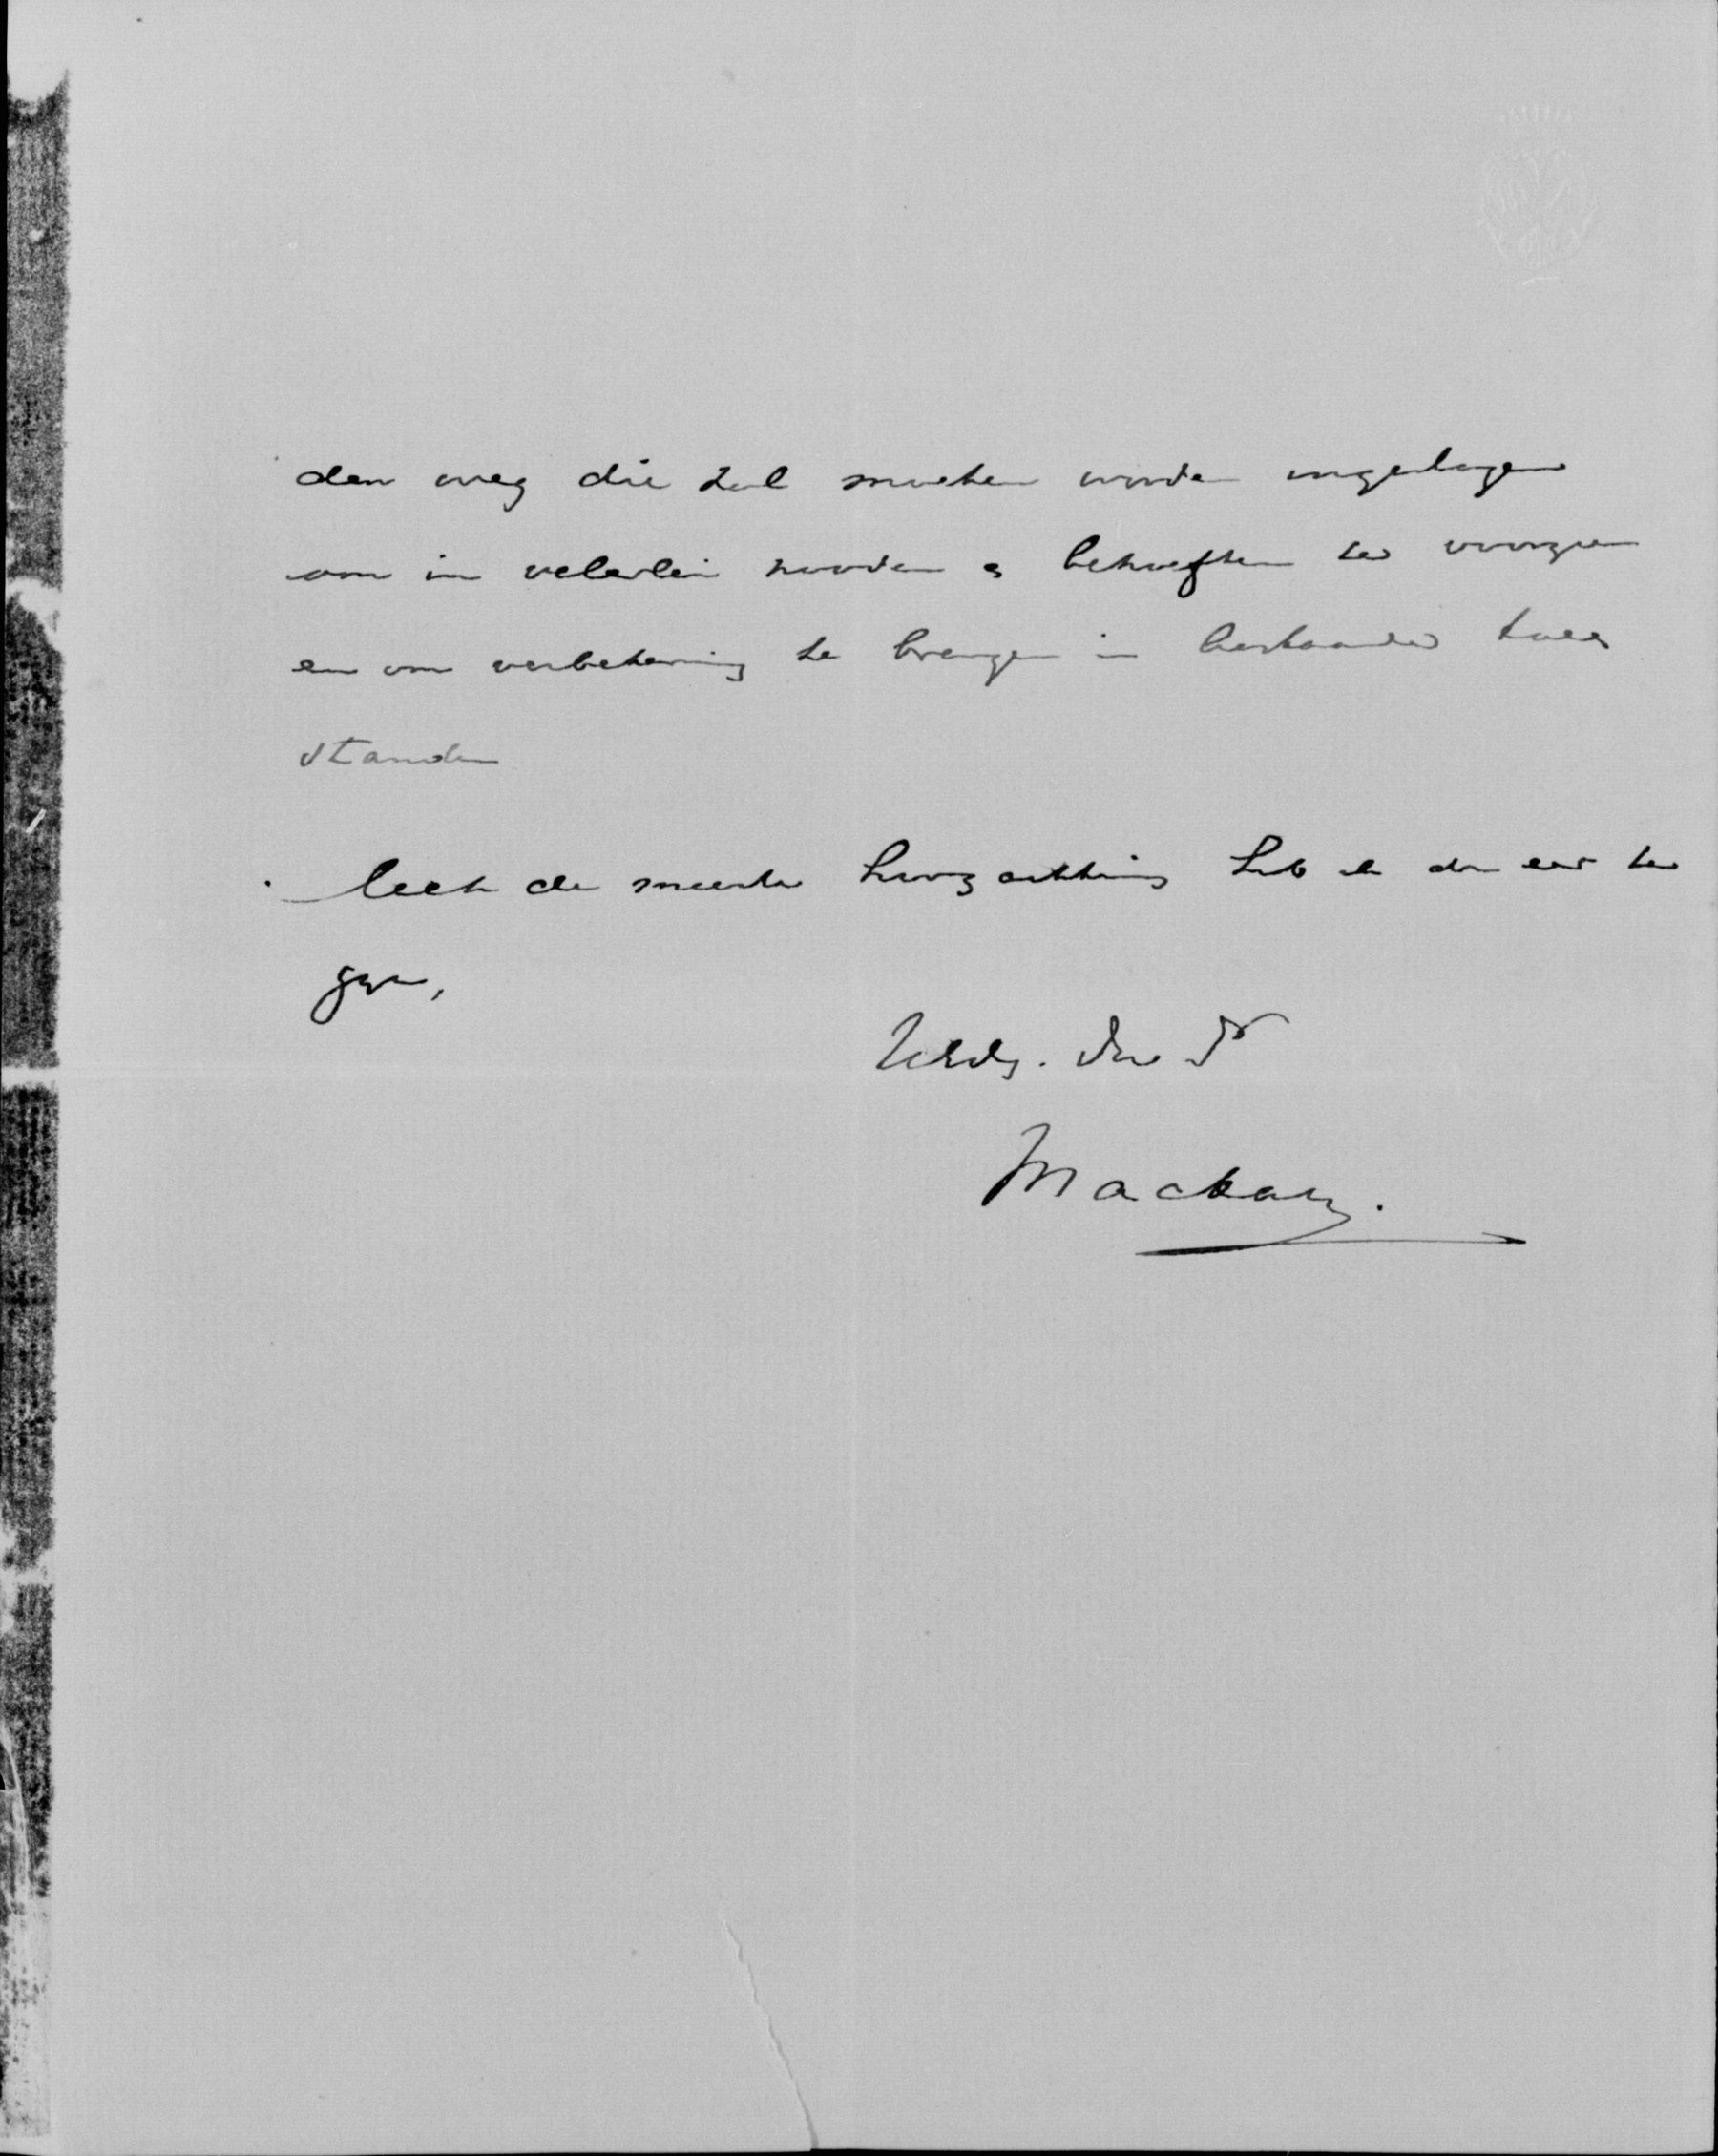 den weg die zal moeten worden ingeslagen
om in velerlei nooden & behoeften te voorzien
en om verbetering te brengen in bestaande toe=
standen
Met de meeste hoogachting heb ik de eer te
zijn,
UEdg. dw. dr
Mackay.